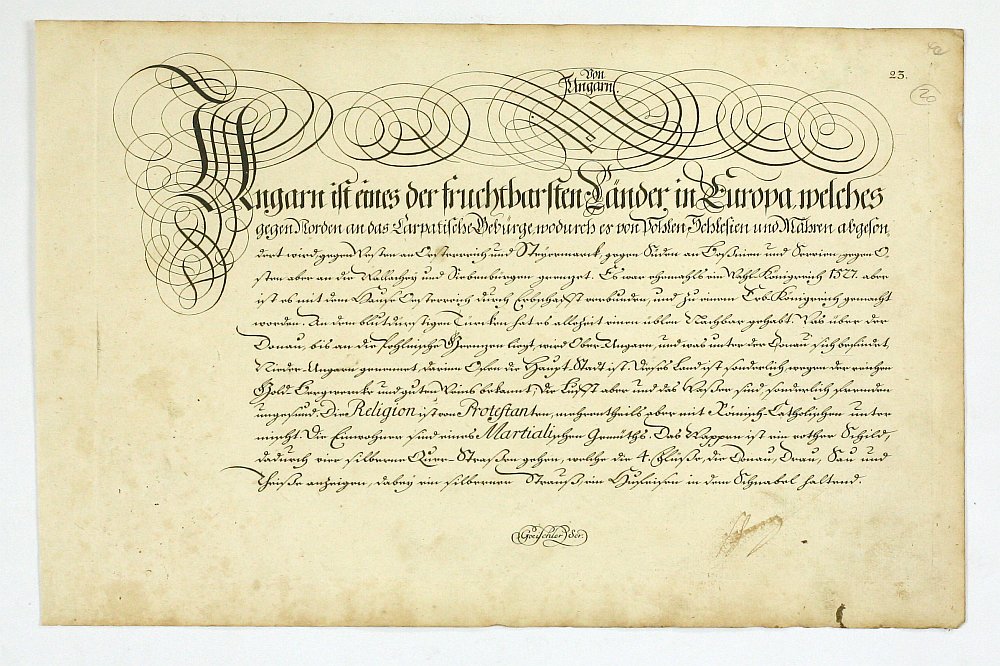 Von
Ungarn.
23.
Ungarn ist eines der fruchtbarsten Länder in Europa, welches
gegen Norden an das Carpatische Gebürge, wodurch es von Pohlen, Schlesien und Mähren abgeson,
dert wird, gegen Westen an Oesterreich und Steyermarck, gegen Süden an Bosnien und Servien, gegen O,
sten aber an die Wallachey und Siebenbürgen grentzet. Es war ehemahls ein Wahl-Königreich 1527. aber
ist es mit dem Hause Oesterreich durch Erbschafft verbunden, und zu einem Erb-Königreich gemacht
worden. An dem blutdürstigen Türcken hat es allezeit einen üblen Nachbar gehabt. Was über der
Donau, bis an die Pohlnische Grentzen liegt, wird Ober-Ungarn, und was unter der Donau sich befindet,
Nieder-Ungarn genennet, darinn Ofen die Haupt-Stadt ist. Dieses Land ist sonderlich wegen der reichen
Gold-Bergwercke und guten Weins bekannt; die Lufft aber und das Waßer sind sonderlich fremden
ungesund. Die Religion ist von Protestanten, mehrentheils aber mit Römisch-Catholischen unter
mischt. Die Einwohner sind eines Martialischen Gemüths. Das Wappen ist ein rother Schild,
dadurch vier silberne Quer-Straßen gehen, welche die 4. Flüße, die Donau, Drau, Sau und
Theiße anzeigen, dabey ein silberner Strauß ein Hufeisen in dem Schnabel haltend.